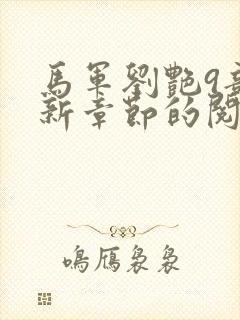 馬軍劉艷9章
新章節的閱
鳴鴈裊裊